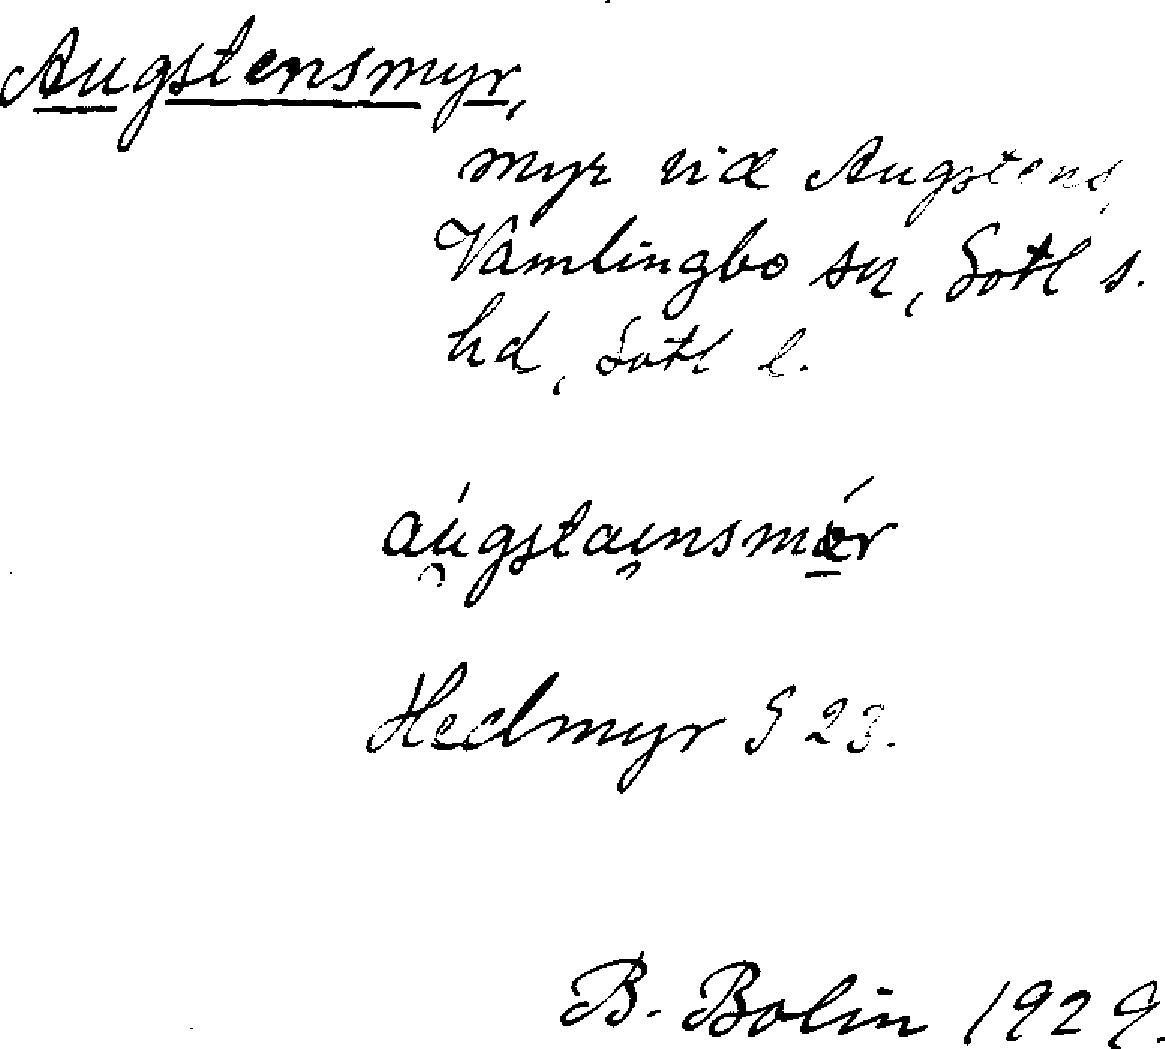 Augstensmyr,
myr vid Augstens,
Vamlingbo sn, Gotl s.
hd, Gotl l.
áu̯gstai̯nsmǿr
Hedmyr § 23.
B. Bolin 1929.